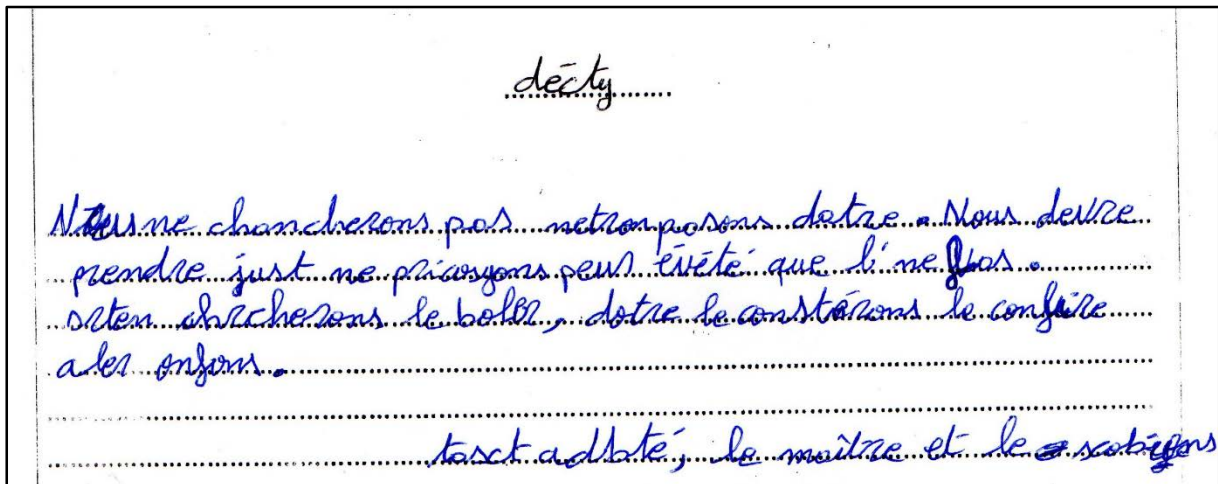 décty
Nous ne chancherons pas netronpasons datre. Nous devre
prendre just ne pricosyons peur évété que l'ne pas.
orten chrcherons le boler, dotre le constérons le confire
a ler enfons.
tosct adbté, le maître et le scobiyens